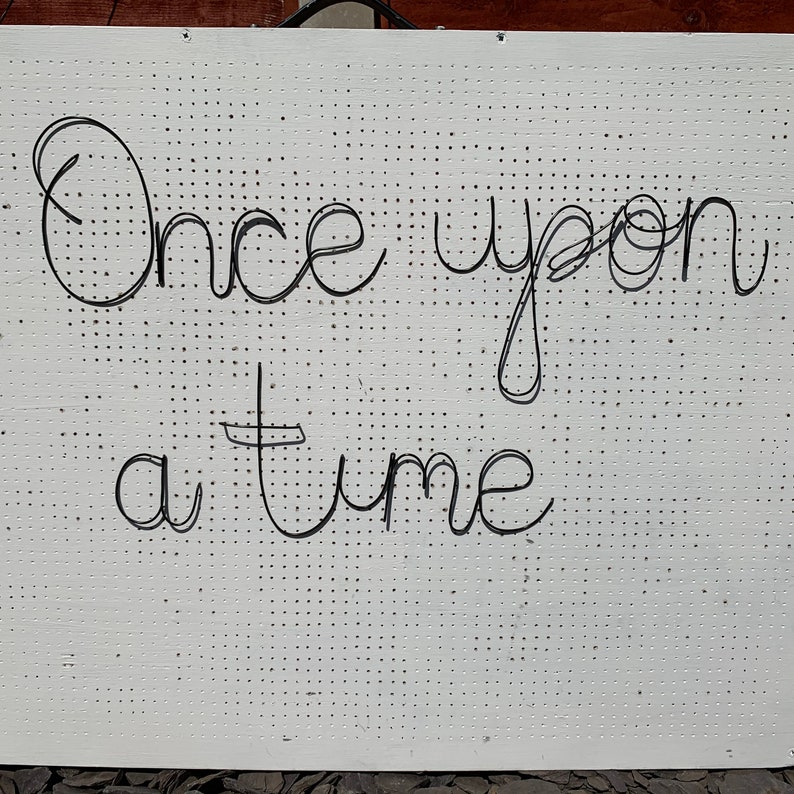 Once upon
a time